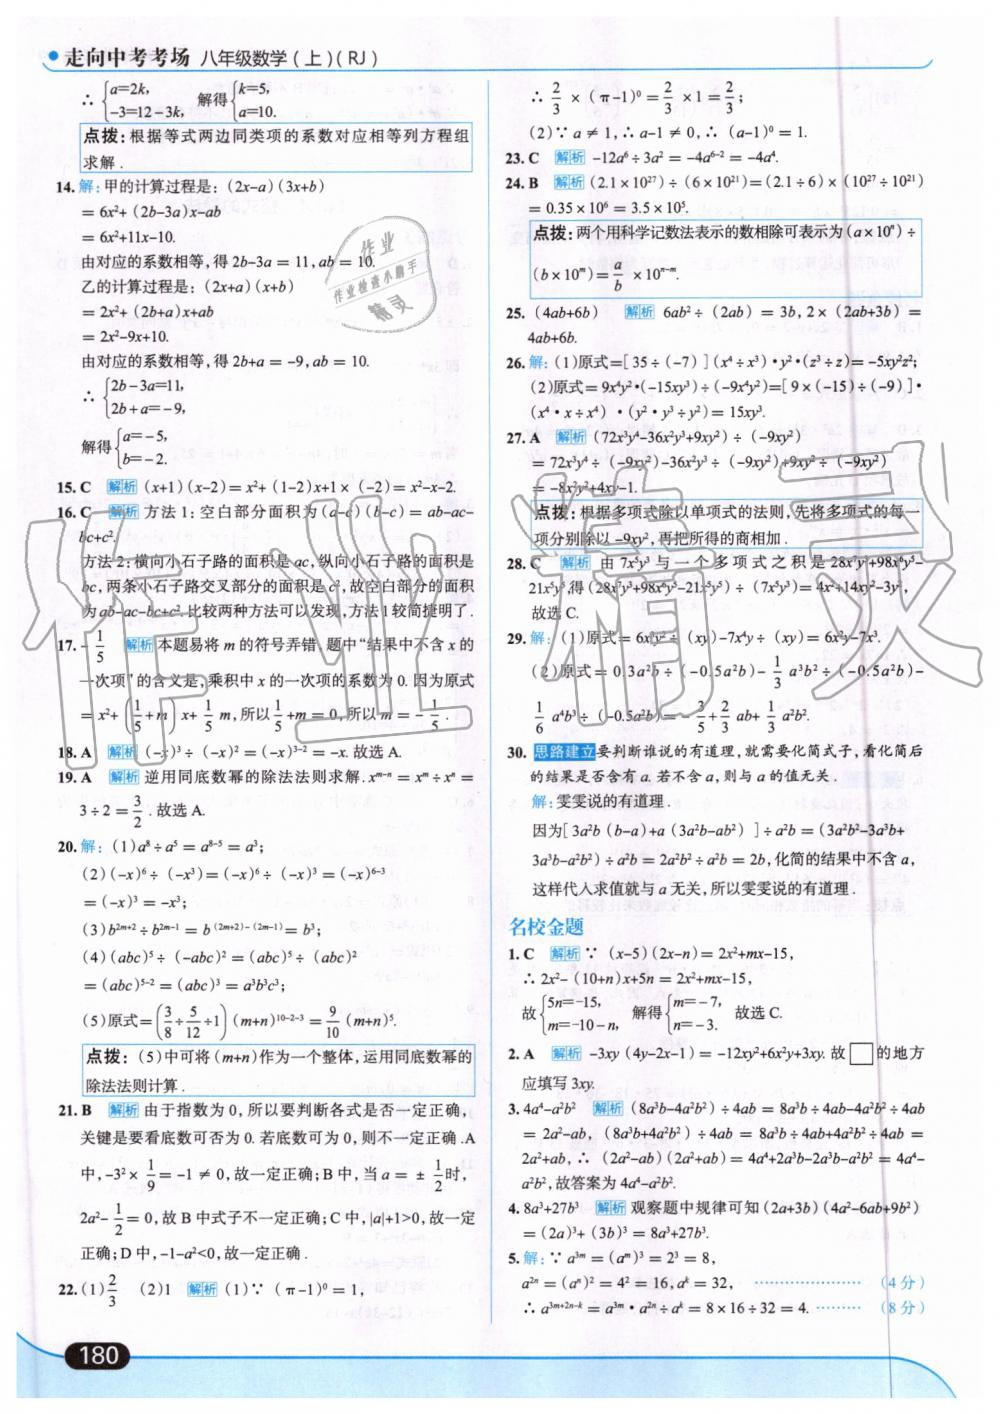 走向中考考场 八年级数学(上)(RJ)
∴ {a=2k, -3=12-3k, 解得 {k=5, a=10.
点拨:根据等式两边同类项的系数对应相等列方程组
求解.
14.解:甲的计算过程是:(2x-a)(3x+b)
=6x²+(2b-3a)x-ab
=6x²+11x-10.
由对应的系数相等,得2b-3a=11,ab=10.
乙的计算过程是:(2x+a)(x+b)
=2x²+(2b+a)x+ab
=2x²-9x+10.
由对应的系数相等,得2b+a=-9,ab=10.
∴ {2b-3a=11, 2b+a=-9,
解得 {a=-5, b=-2.
15.C 解析 (x+1)(x-2)=x²+(1-2)x+1×(-2)=x²-x-2.
16.C 解析 方法1:空白部分面积为(a-c)(b-c)=ab-ac-
bc+c².
方法2:横向小石子路的面积是ac,纵向小石子路的面积是
bc,两条小石子路交叉部分的面积是c²,故空白部分的面积
为ab-ac-bc+c².比较两种方法可以发现,方法1较简捷明了.
17.-1/5 解析 本题易将m的符号弄错,题中“结果中不含x的
一次项”的含义是:乘积中x的一次项的系数为0.因为原式
=x²+(1/5+m)x+1/5m,所以1/5+m=0,所以m=-1/5.
18.A 解析 (-x)³÷(-x)²=(-x)³⁻²=-x.故选A.
19.A 解析 逆用同底数幂的除法法则求解.xᵐ⁻ⁿ=xᵐ÷xⁿ=
3÷2=3/2.故选A.
20.解:(1)a⁸÷a⁵=a⁸⁻⁵=a³;
(2)(-x)⁶÷(-x³)=(-x)⁶÷(-x)³=(-x)⁶⁻³
=(-x)³=-x³;
(3)b²ᵐ⁺²÷b²ᵐ⁻¹=b⁽²ᵐ⁺²⁾⁻⁽²ᵐ⁻¹⁾=b³;
(4)(abc)⁵÷(-abc)²=(abc)⁵÷(abc)²
=(abc)⁵⁻²=(abc)³=a³b³c³;
(5)原式=(3/8÷5/12÷1)(m+n)¹⁰⁻²⁻³=9/10(m+n)⁵.
点拨:(5)中可将(m+n)作为一个整体,运用同底数幂的
除法法则计算.
21.B 解析 由于指数为0,所以要判断各式是否一定正确,
关键是要看底数可否为0.若底数可为0,则不一定正确.A
中,-3²×1/9=-1≠0,故一定正确;B中,当a=±1/2时,
2a²-1/2=0,故B中式子不一定正确;C中,|a|+1>0,故一定
正确;D中,-1-a²<0,故一定正确.
22.(1)2/3 (2)1 解析 (1)∵(π-1)⁰=1,
∴2/3×(π-1)⁰=2/3×1=2/3;
(2)∵a≠1,∴a-1≠0,∴(a-1)⁰=1.
23.C 解析 -12a⁶÷3a²=-4a⁶⁻²=-4a⁴.
24.B 解析 (2.1×10²⁷)÷(6×10²¹)=(2.1÷6)×(10²⁷÷10²¹)
=0.35×10⁶=3.5×10⁵.
点拨:两个用科学记数法表示的数相除可表示为(a×10ⁿ)÷
(b×10ᵐ)=a/b×10ⁿ⁻ᵐ.
25.(4ab+6b) 解析 6ab²÷(2ab)=3b,2×(2ab+3b)=
4ab+6b.
26.解:(1)原式=[35÷(-7)](x⁴÷x³)·y²·(z³÷z)=-5xy²z²;
(2)原式=9x⁴y²·(-15xy³)÷(-9x⁴y²)=[9×(-15)÷(-9)]·
(x⁴·x÷x⁴)·(y²·y³÷y²)=15xy³.
27.A 解析 (72x³y⁴-36x²y³+9xy²)÷(-9xy²)
=72x³y⁴÷(-9xy²)-36x²y³÷(-9xy²)+9xy²÷(-9xy²)
=-8x²y²+4xy-1.
点拨:根据多项式除以单项式的法则,先将多项式的每一
项分别除以-9xy²,再把所得的商相加.
28.C 解析 由7x⁵y³与一个多项式之积是28x⁷y³+98x⁶y⁵-
21x⁵y⁵,得(28x⁷y³+98x⁶y⁵-21x⁵y⁵)÷(7x⁵y³)=4x²+14xy²-3y²,
故选C.
29.解:(1)原式=6x³y²÷(xy)-7x⁴y÷(xy)=6x²y-7x³.
(2)原式=0.3a²b÷(-0.5a²b)-1/3a³b²÷(-0.5a²b)-
1/6a⁴b³÷(-0.5a²b)=-3/5+2/3ab+1/3a²b².
30.思路建立 要判断谁说的有道理,就需要化简式子,看化简后
的结果是否含有a.若不含a,则与a的值无关.
解:雯雯说的有道理.
因为[3a²b(b-a)+a(3a²b-ab²)]÷a²b=(3a²b²-3a³b+
3a³b-a²b²)÷a²b=2a²b²÷a²b=2b,化简的结果中不含a,
这样代入求值就与a无关,所以雯雯说的有道理.
名校金题
1.C 解析 ∵(x-5)(2x-n)=2x²+mx-15,
∴2x²-(10+n)x+5n=2x²+mx-15,
故 {5n=-15, m=-10-n, 解得 {m=-7, n=-3. 故选C.
2.A 解析 -3xy(4y-2x-1)=-12xy²+6x²y+3xy.故□的地方
应填写3xy.
3.4a⁴-a²b² 解析 (8a³b-4a²b²)÷4ab=8a³b÷4ab-4a²b²÷4ab
=2a²-ab,(8a³b+4a²b²)÷4ab=8a³b÷4ab+4a²b²÷4ab=
2a²+ab,∴(2a²-ab)(2a²+ab)=4a⁴+2a³b-2a³b-a²b²=4a⁴-
a²b²,故答案为4a⁴-a²b².
4.8a³+27b³ 解析 观察题中规律可知(2a+3b)(4a²-6ab+9b²)
=(2a)³+(3b)³=8a³+27b³.
5.解:∵a³ᵐ=(aᵐ)³=2³=8,
a²ⁿ=(aⁿ)²=4²=16,aᵏ=32, ………………(4分)
∴a³ᵐ⁺²ⁿ⁻ᵏ=a³ᵐ·a²ⁿ÷aᵏ=8×16÷32=4. ………(8分)
180
作业
作业检查小助手
精灵
作业精灵